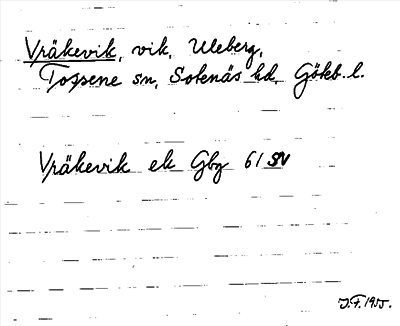 Vräkevik, vik, Uleberg,
Tossene sn, Sotenäs hd, Göteb. l.
Vräkevik ek Gbg 61 SV
J.F. 1955.